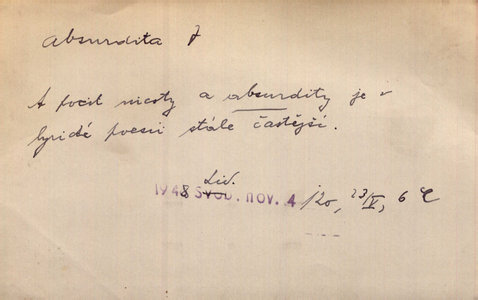 absurdita f
A pocit nicoty a absurdity je v
lyrické poesii stále častější.
Lid.
1948 SVOB. NOV. 4 /20, 23/V, 6 č